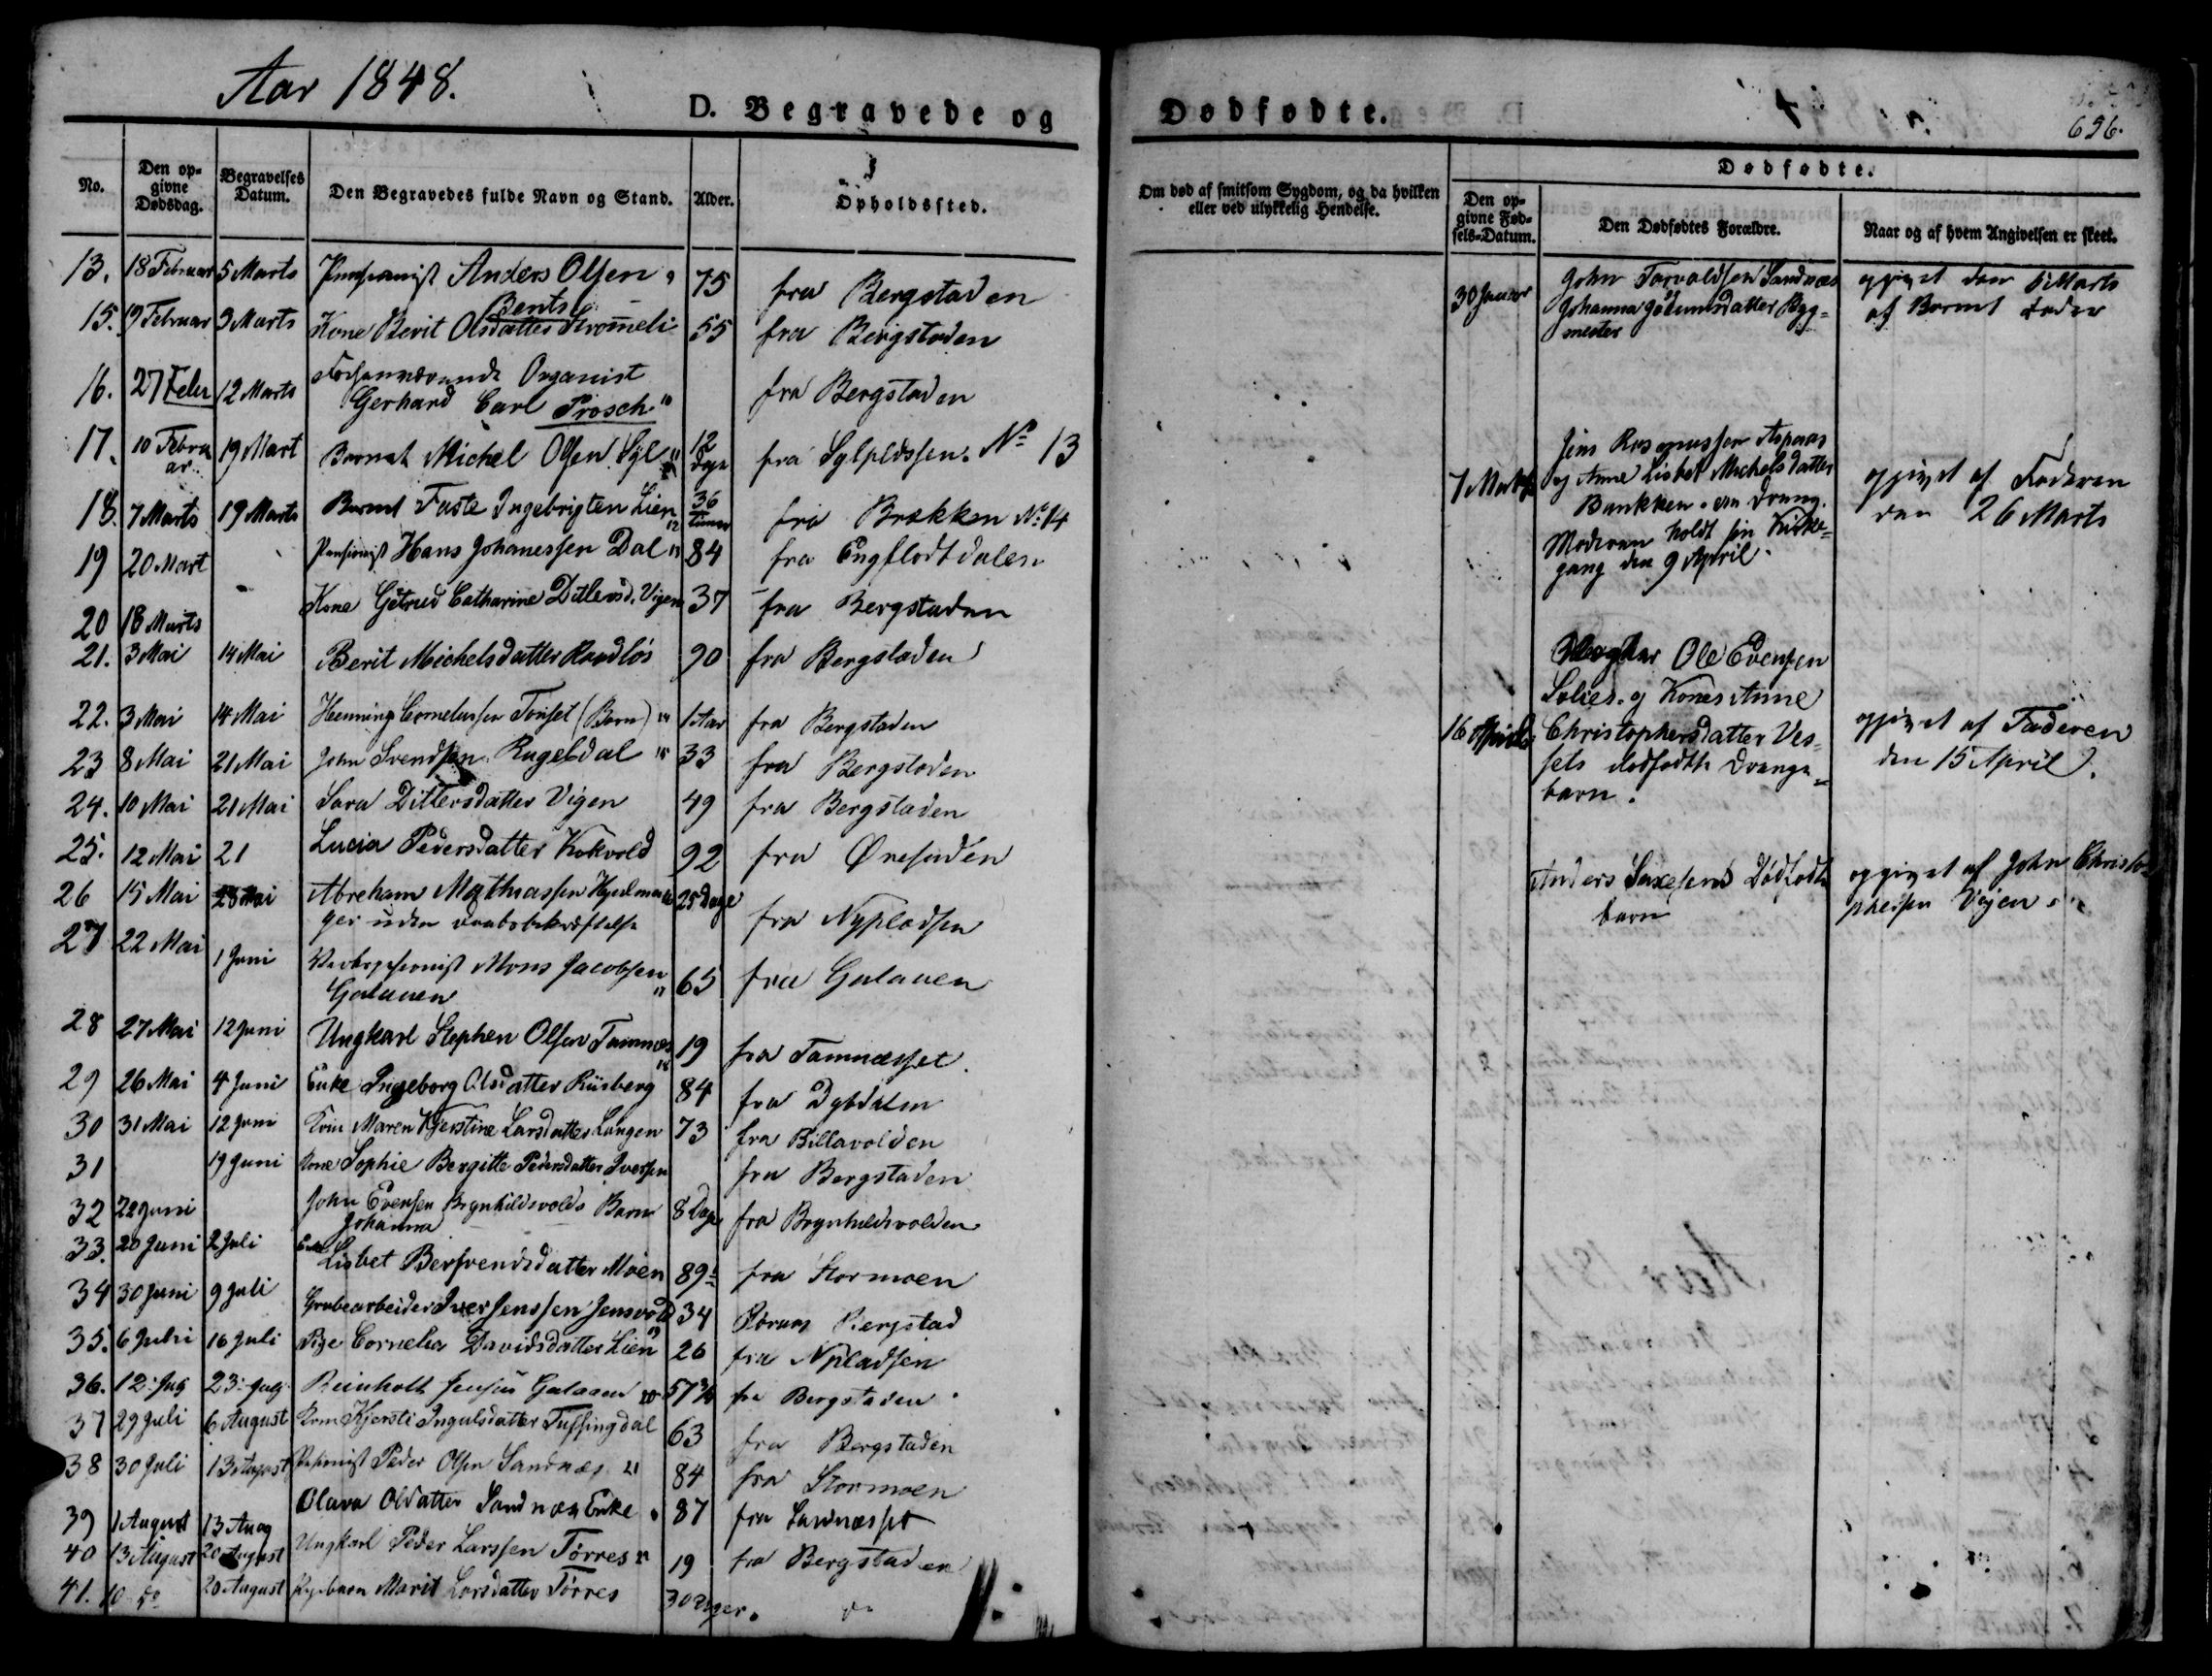 Aar 1848.
D. Begravede og
No.
Den op-
givne
Dødsdag.
Begravelses
Datum.
Den Begravedes fulde Navn og Stand.
Alder.
Opholdssted.
13. 18 Februar 5 Marts Pensionist Anders Olsen 75 fra Bergstaden
Bents
15. 19 Februar 3 Marts Kone Berit Olsdatter 55 fra Bergstaden
16. 27 Febr 12 Marts Organist fra Bergstaden
Gerhard Carl Prosch
17. 10 Febru 19 Mart Barnet Michel Olsen Syl 12 fra Sylpladsen. No 13
ar Dage
18. 7 Marts 19 Marts Barnet Faste Ingebrigten Lien 36 fra Brækken No 14
Timer
19 20 Mart Pensionist Hans Johanessen Dal 84 fra Engflodtdalen
20 18 Marts Kone Getrud Catharine Ditlevsd. Vigen 37 fra Bergstaden
21. 3 Mai 14 Mai Berit Michelsdatter Randløs 90 fra Bergstaden
22. 3 Mai 14 Mai Henning Cornelussen Tønset (Barn) 1 Aar fra Bergstaden
23 8 Mai 21 Mai John Svendsen Rugeldal 33 fra Bergstaden
24. 10 Mai 21 Mai Sara Ditlersdatter Vigen 49 fra Bergstaden
25. 12 Mai 21 Lucia Pedersdatter Kokvold 92 fra Ørefaden
26 15 Mai 28 Mai Abreham Mathiassen 25 Dage fra Nypladsen
ger uden daabsbekræftelse
27 22 Mai 1 Juni Mons Jacobsen 65 fra Galauen
Galauen
28 27 Mai 12 Juni Ungkarl Stephen Olsen Tamnes 19 fra Tamnæsset.
29 26 Mai 4 Juni Enke Ingeborg Olsdatter Riisberg 84 fra Dybdalen
30 31 Mai 12 Juni Kone Maren Kjerstine Larsdatter Langen 73 fra Billavolden
31 19 Juni Kone Sophie Bergitte Pedersdatter Iversen fra Bergstaden
32 22 Juni John Evensen Brynhildsvolds Barn 8 Dage fra Brynhildsvolden
Johanna
33. 20 Juni 2 Juli Enke Lisbet Bersvendsdatter Moen 89 fra Stormoen
34 30 Juni 9 Juli Grubearbeider Iver Jenssen Jensvold 34 Røraas Bergstad
35. 6 Juli 16 Juli Pige Cornelia Davidsdatter Lien 26 fra Nypladsen
36. 12 July 23 July Reinholt Jensen Galaaen 57 3/4 fra Bergstaden
37 29 Juli 6 August Kone Kjersti Ingulsdatter Tufsingdal 63 fra Bergstaden
38 30 Juli 13 August Pensionist Peder Olsen Sandnæs 84 fra Stormoen
39 1 August 13 Aug Olava Olsdatter Sandnæs Enke 87 fra Sandnæsset
40 13 August 20 August Ungkarl Peder Larssen Tørres 19 fra Bergstaden
41. 10 do 20 August Pigebarn Marit Larsdatter Tørres 30 Uger. do
Dødfødte.
656.
Om død af smitsom Sygdom, og da hvilken
eller ved ulykkelig Hendelse.
Dødfødte.
Den op-
givne Fød-
sels-Datum.
Den Dødfødtes Forældre.
Naar og af hvem Angivelsen er skeet.
30 Januar
John Torvaldsen Sandnæs
Johanna Gudmundsdatter Byg-
mester
opgivet den 5 Marts
af Barnet Fader
7 Marts
Jens Rasmussen Aspaas
og Anne Lisbet Michelsdatter
Bankken. en Dreng.
Moderen holdt sin Kirke-
gang den 9 April.
opgivet af Faderen
den 26 Marts
16 April
Ole Evensen
Solier. og Kones Anne
Christophersdatter Ves-
sels dødfødte Drenge-
barn.
opgivet af Faderen
den 15 April.
Anders Saxesens Dødfødte
barn
opgivet af John Christo-
phersen Vejen.